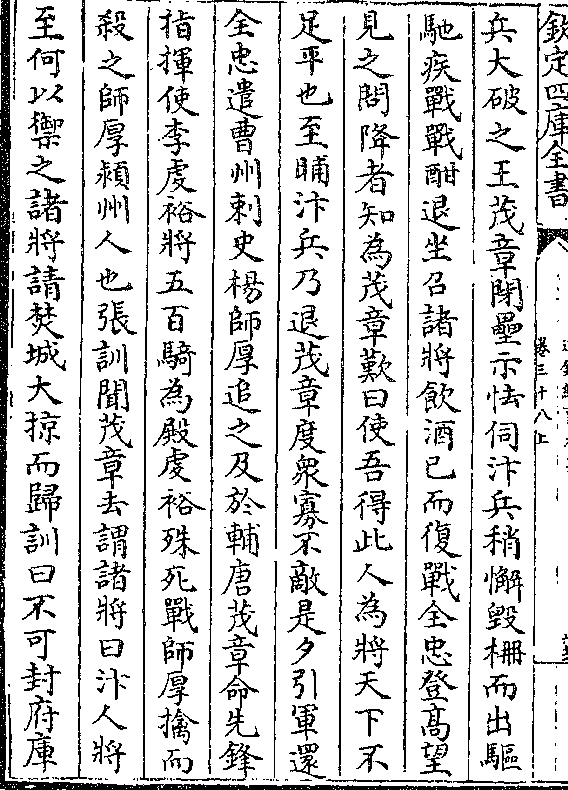 欽定四庫全書
卷三十八上
兵大破之王茂章閉壘示怯伺汴兵稍懈毀柵而出驅
馳疾戰戰酣退坐召諸將飲酒已而復戰全忠登高望
見之問降者知為茂章歎曰使吾得此人為將天下不
足平也至晡汴兵乃退茂章度衆寡不敵是夕引軍還
全忠遣曹州刺史楊師厚追之及於輔唐茂章命先鋒
指揮使李虔裕將五百騎為殿虔裕殊死戰師厚擒而
殺之師厚潁州人也張訓聞茂章去謂諸將曰汴人將
至何以禦之諸將請焚城大掠而歸訓曰不可封府庫